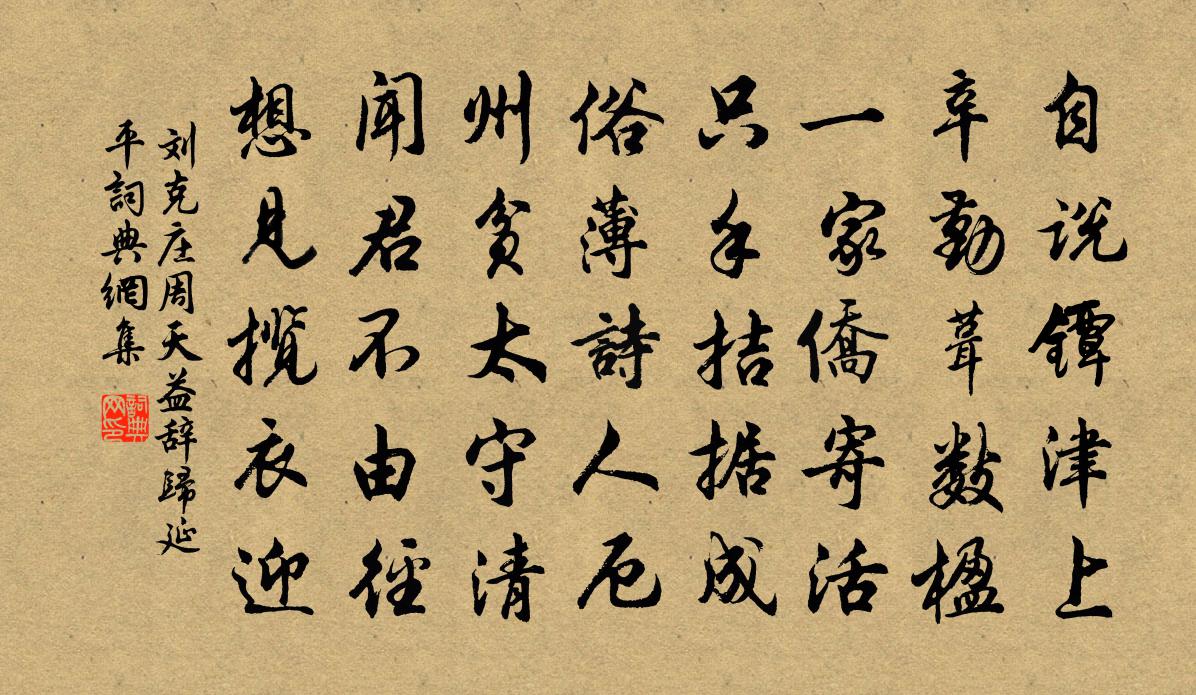 自说鐔津上
辛勤葺数楹
一家僑寄活
只手拮据成
俗薄詩人厄
州贫太守清
闻君不由徑
想見揽衣迎
刘克庄周天益辞歸延
平詞典網集
詞典
网印